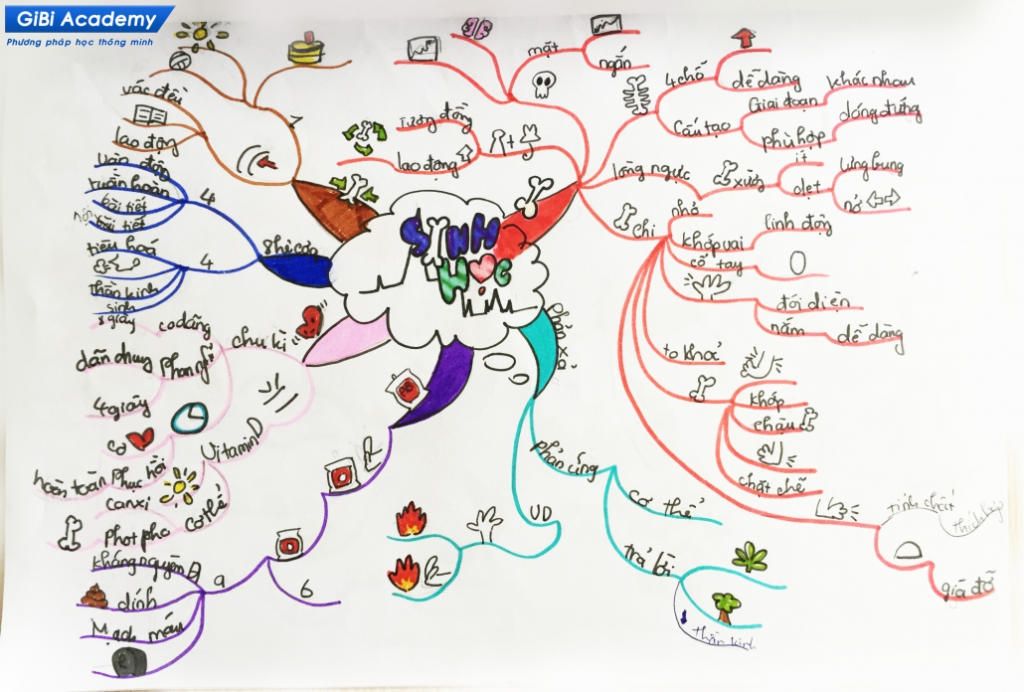 GiBi Academy
Phương pháp học thông minh
SINH
HỌC
vác đều
lao động
7
vận động
tuần hoàn
nội tiết
bài tiết
4
tiêu hoá
thần kinh
4
8 hệ cơ
co dãn
dẫn chung
pha nhĩ
4 giây
chu kì
cơ
hoàn toàn phục hồi
Vitamin D
canxi
Phot pho
cơ thể
kháng nguyên A
dính
Mạch máu
a
6
Phản xạ
phản ứng
VD
cơ thể
trả lời
thần kinh
mặt
ngắn
tương đồng
lao động
4 chỗ
dễ dàng
cấu tạo
Giai đoạn
khác nhau
phù hợp
đóng đứng
lồng ngực
xườn
ít
dẹt
lưng bụng
nở
chi
nhỏ
khớp vai
linh động
cổ tay
đối diện
nắm
dễ dàng
to khoẻ
khớp
chậu
chặt chẽ
tính chất
thích hợp
giá đỡ